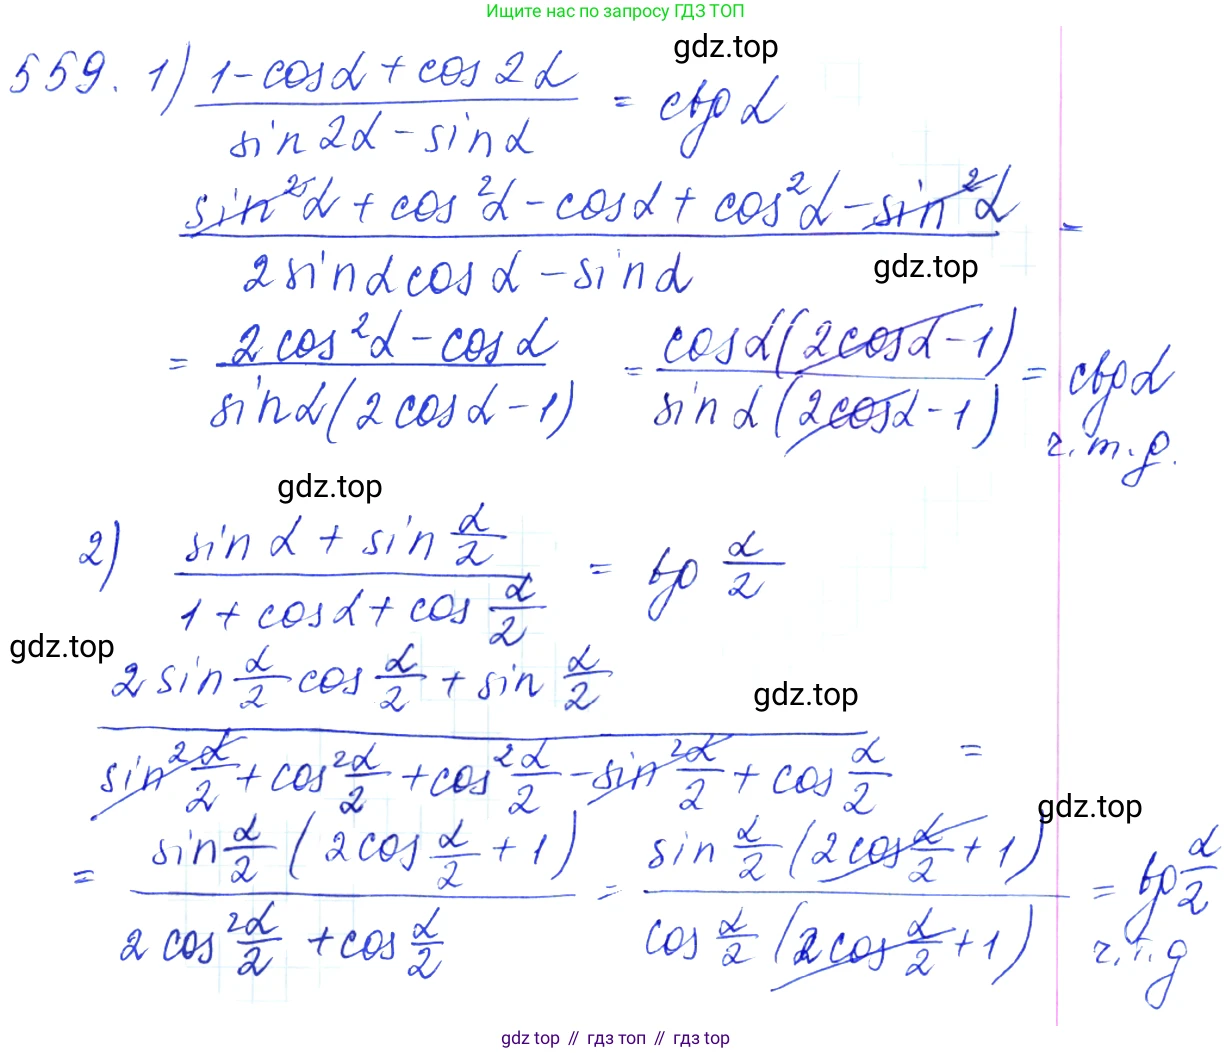 Ищите нас по запросу ГДЗ ТОП
gdz.top
559. 1) (1 - cos α + cos 2α) / (sin 2α - sin α) = ctg α
(sin²α + cos²α - cos α + cos²α - sin²α) / (2 sin α cos α - sin α) =
gdz.top
= (2 cos²α - cos α) / (sin α (2 cos α - 1)) = (cos α (2 cos α - 1)) / (sin α (2 cos α - 1)) = ctg α
ч.т.д.
gdz.top
2) (sin α + sin α/2) / (1 + cos α + cos α/2) = tg α/2
gdz.top
(2 sin α/2 cos α/2 + sin α/2) / (sin² α/2 + cos² α/2 + cos² α/2 - sin² α/2 + cos α/2) =
gdz.top
gdz.top
= (sin α/2 (2 cos α/2 + 1)) / (2 cos² α/2 + cos α/2) = (sin α/2 (2 cos α/2 + 1)) / (cos α/2 (2 cos α/2 + 1)) = tg α/2
ч.т.д
gdz top // гдз топ // gdz top